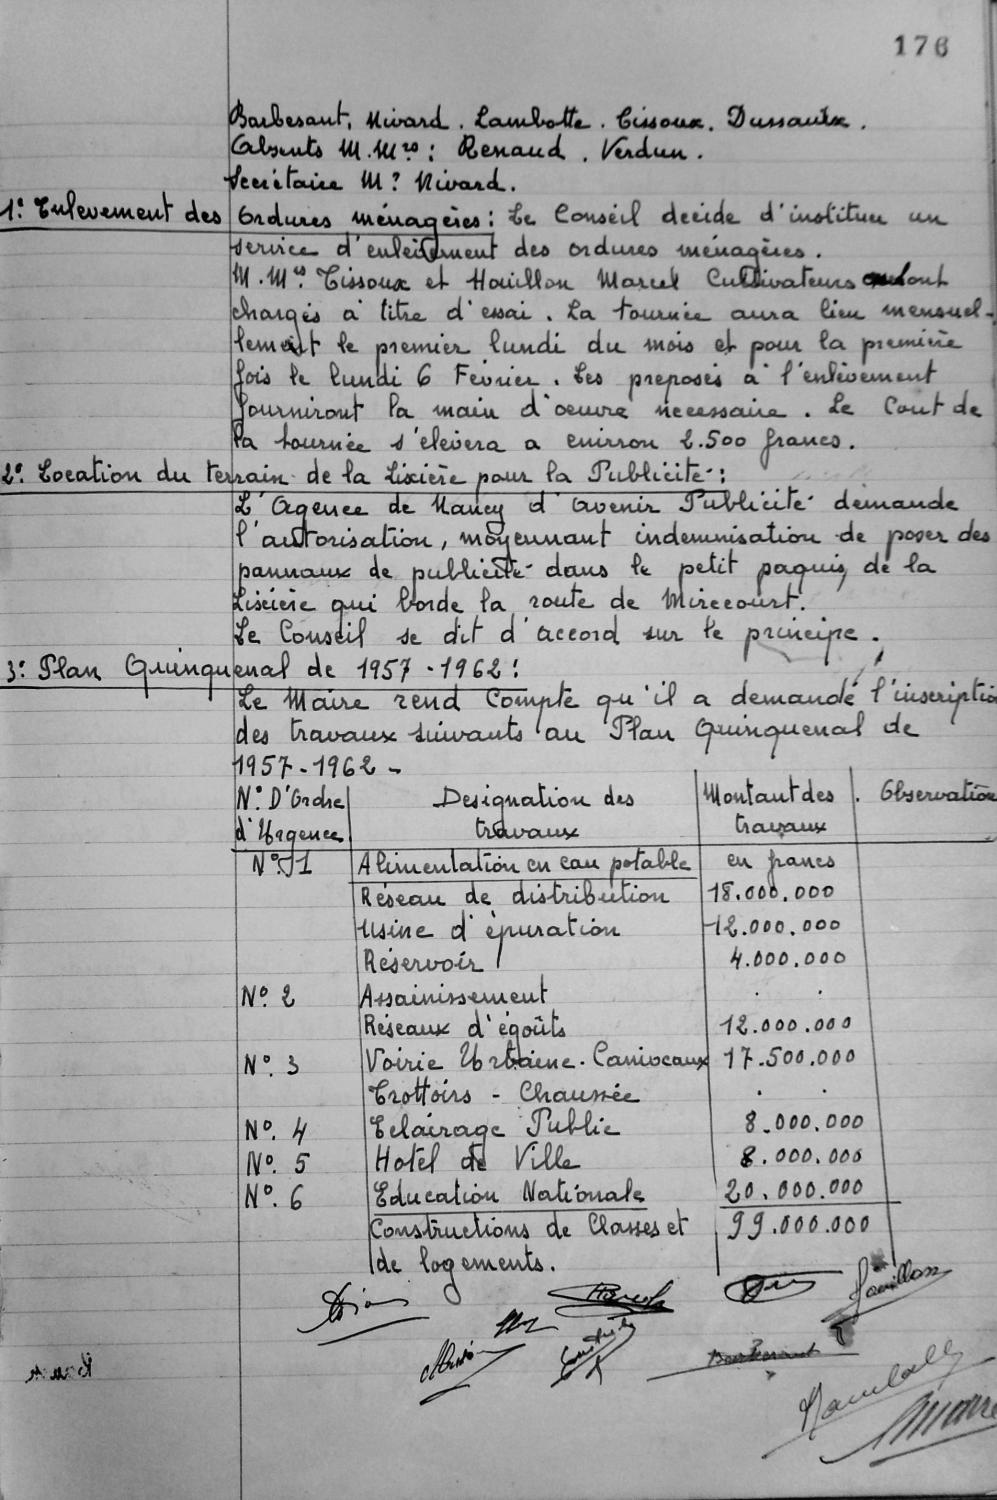 176
Barbesant, Nivard. Lambotte. Tissoux. Dussaulx.
Absents M.Mrs: Renaud. Verdun.
Secrétaire Mr Nivard.
1º. Enlevement des Ordures ménagères: Le Conseil decide d'instituer un
service d'enlèvement des ordures ménagères.
M.Mrs Tissoux et Houillon Marcel Cultivateurs sont
chargés à titre d'essai. La tournée aura lieu mensuel-
lement le premier lundi du mois et pour la première
fois le lundi 6 Février. Les preposés à l'enlèvement
fourniront la main d'oeuvre necessaire. Le Cout de
la tournée s'élèvera a environ 2.500 francs.
2º. Location du terrain de la Lixière pour la Publicité:
L'Agence de Nancy d'Avenir Publicité demande
l'autorisation, moyennant indemnisation de poser des
pannaux de publicité dans le petit paquis, de la
Lixière qui borde la route de Mirecourt.
Le Conseil se dit d'accord sur le principe.
3º. Plan Quinquenal de 1957-1962:
Le Maire rend Compte qu'il a demandé l'inscriptio
des travaux suivants au Plan Quinquenal de
1957-1962-
Nº D'Ordre Designation des Montant des Observation
d'Urgence travaux travaux
Nº. 1 Alimentation en eau potable en francs
Réseau de distribution 18.000.000
Usine d'épuration 12.000.000
Réservoir 4.000.000
Nº. 2 Assainissement
Réseaux d'égoûts 12.000.000
Nº. 3 Voirie Urbaine. Caniveaux 17.500.000
Trottoirs - Chaussée
Nº. 4 Eclairage Public 8.000.000
Nº. 5 Hotel de Ville 8.000.000
Nº. 6 Education Nationale 20.000.000
Constructions de Classes et 99.000.000
de logements.
Houillon
Barbesant
Lambotte
Nivard